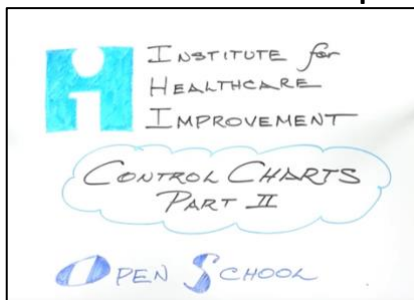 INSTITUTE for
HEALTHCARE
IMPROVEMENT
CONTROL CHARTS
PART II
OPEN SCHOOL